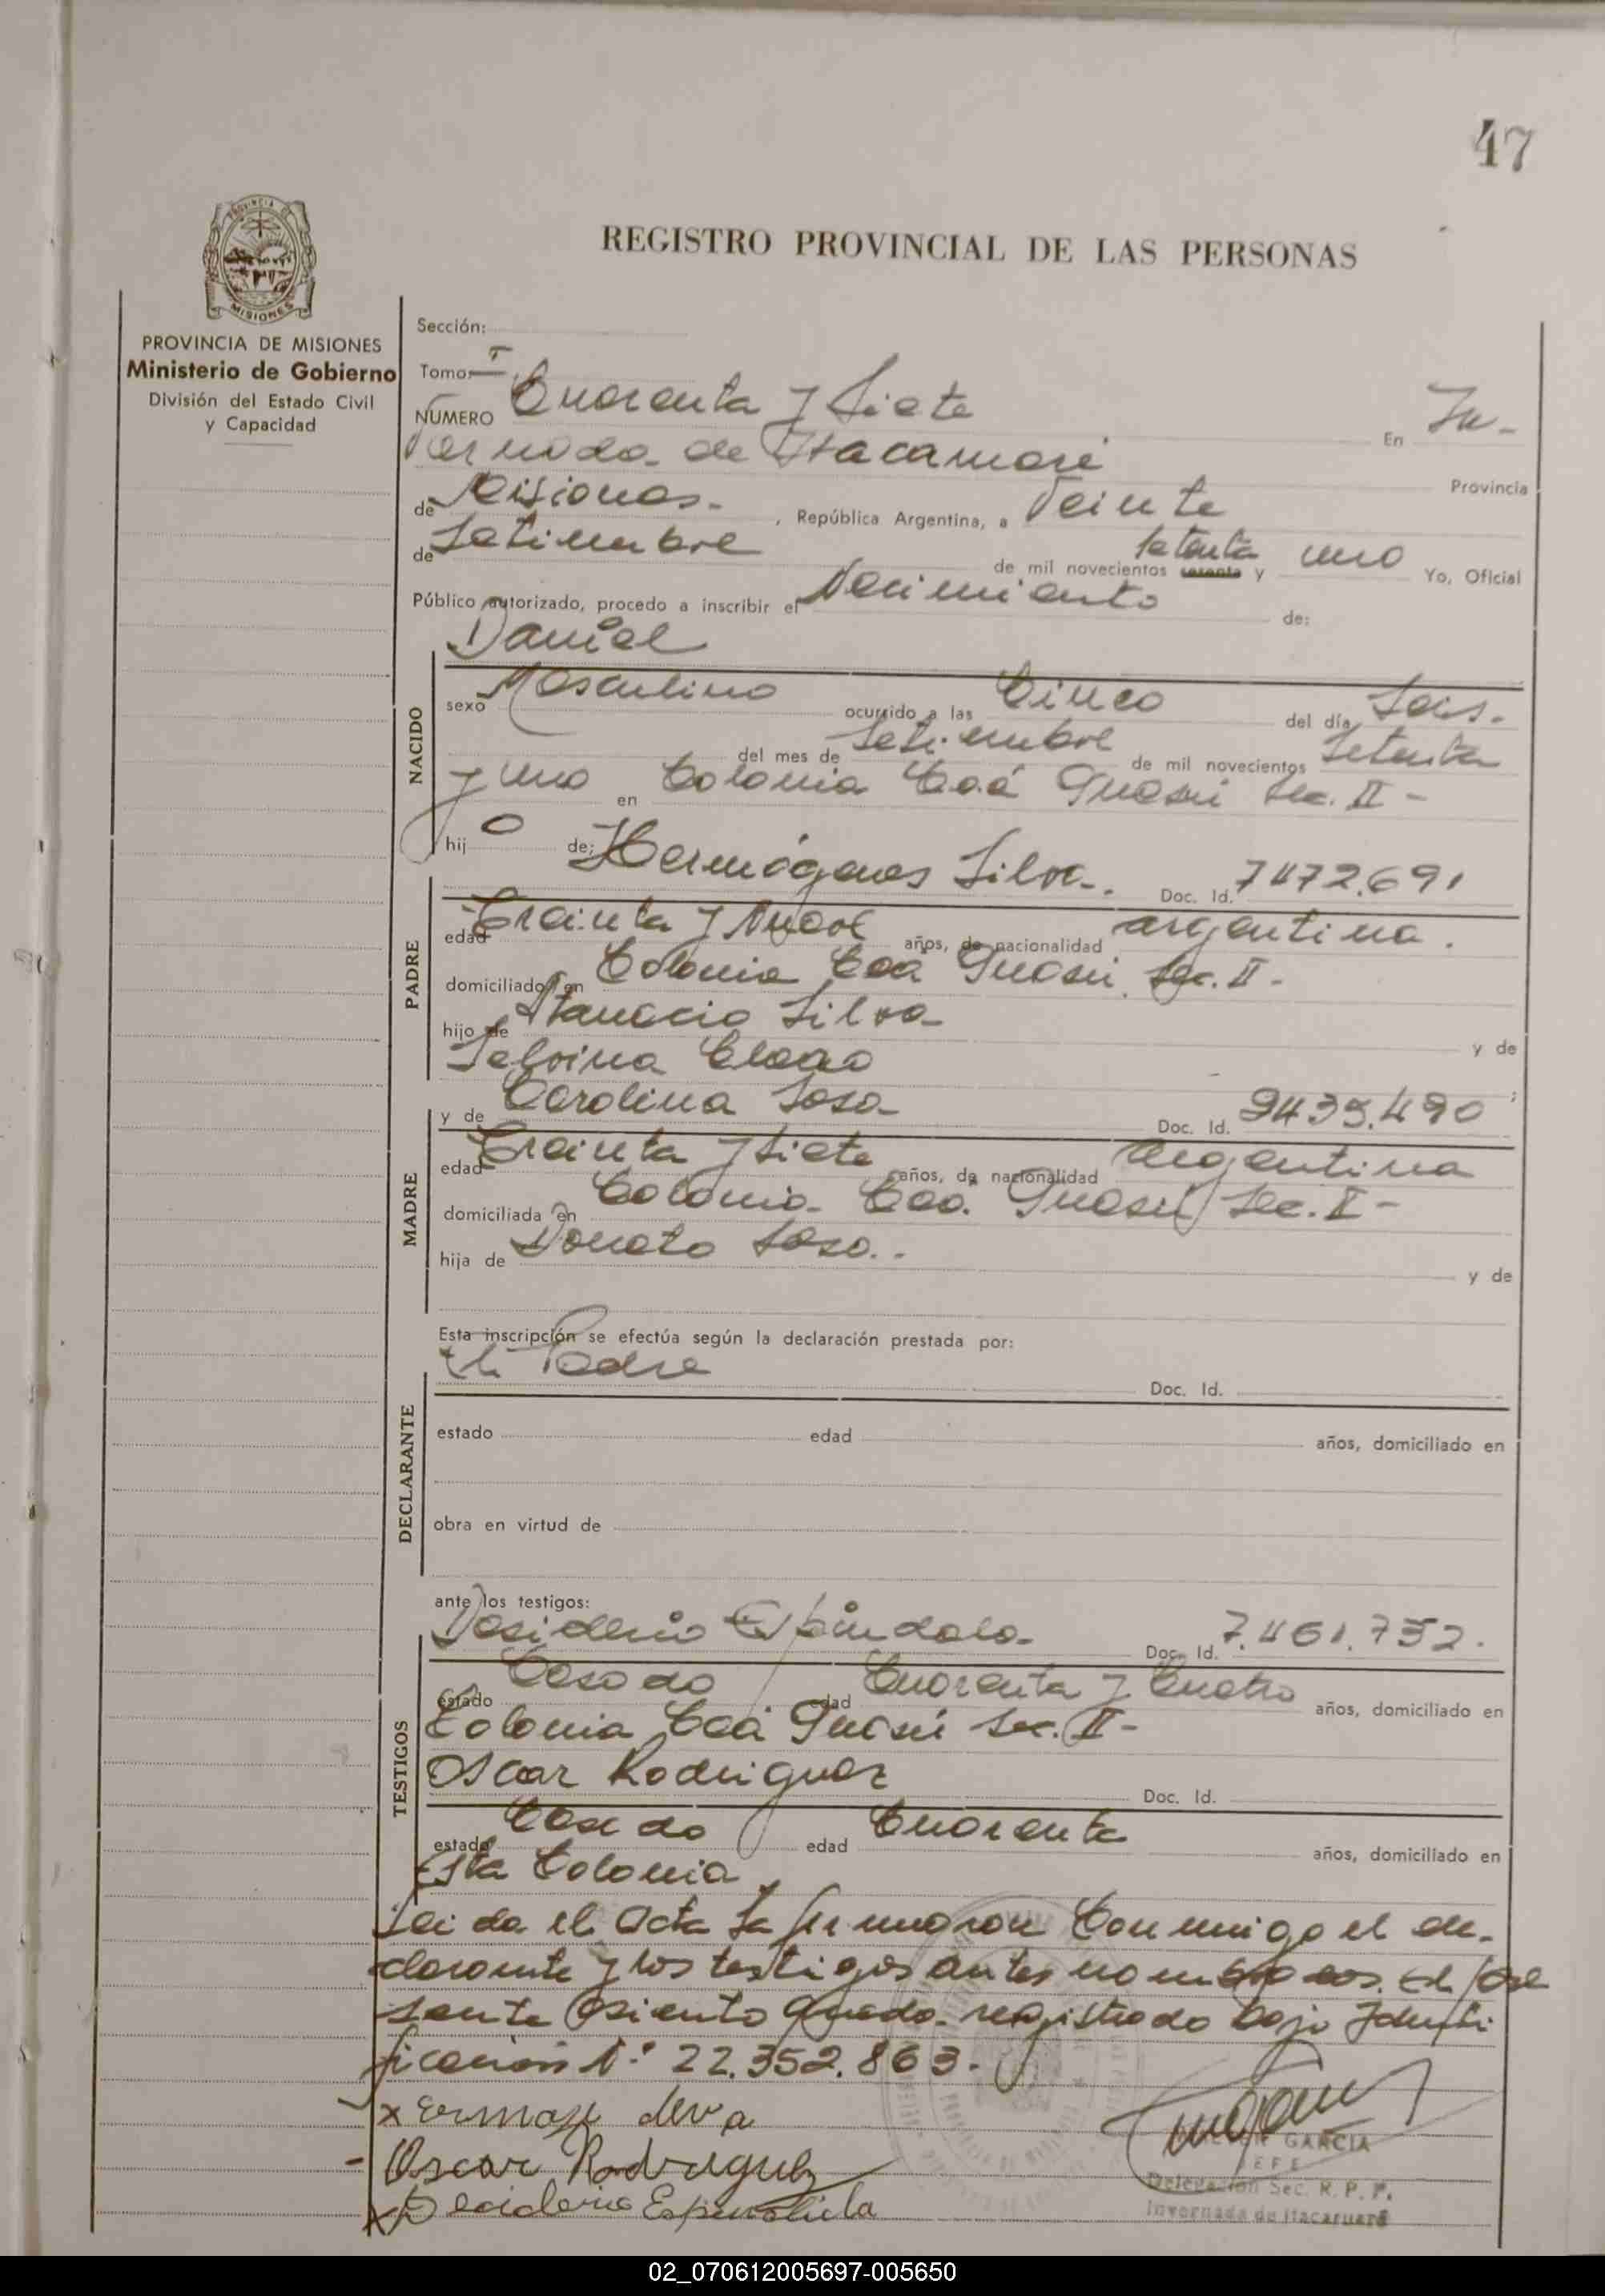 47
PROVINCIA DE
MISIONES
REGISTRO PROVINCIAL DE LAS PERSONAS
PROVINCIA DE MISIONES
Ministerio de Gobierno
División del Estado Civil
y Capacidad
Sección:
Tomo: I
NUMERO Cuarenta y Siete En In-
vernada de Itacaruaré Provincia
de Misiones.- , República Argentina, a Veinte
de Setiembre de mil novecientos sesenta setenta y uno Yo, Oficial
Público autorizado, procedo a inscribir el Nacimiento de:
Daniel
NACIDO
sexo Masculino ocurrido a las Cinco del día Seis.
del mes de Setiembre de mil novecientos Setenta
y uno en Colonia Caá Guasú Sec. II -
hij o de: Hermógenes Silva. Doc. Id. 7472.691
PADRE
edad Treinta y Nueve años, de nacionalidad argentina.
domiciliado en Colonia Caá Guasú Sec. II -
hijo de Atanacio Silva y de
Selvina
y de Carolina Sosa Doc. Id. 9435.490
MADRE
edad Treinta y Siete años, de nacionalidad Argentina
domiciliada en Colonia Caá Guasú Sec. II -
hija de Donato Sosa.. y de
Esta inscripción se efectúa según la declaración prestada por:
El Padre Doc. Id.
DECLARANTE
estado edad años, domiciliado en
obra en virtud de
ante los testigos:
Desiderio Espíndola Doc. Id. 7.461.752.
TESTIGOS
estado Casado edad Cuarenta y Cuatro años, domiciliado en
Colonia Caá Guasú Sec. II -
Oscar Rodriguez Doc. Id.
estado Casado edad Cuarenta años, domiciliado en
Esta Colonia
Leida el Acta La firmaron Conmigo el de-
clarante y los testigos antes nombrados. El pre
sente Asiento queda registrado bajo Identi
ficación N.º 22.352.863.-
x
- Oscar Rodriguez
x Desiderio
GARCIA
JEFE
Delegación Sec. R. P. P.
Invernada de Itacaruaré
02_070612005697-005650